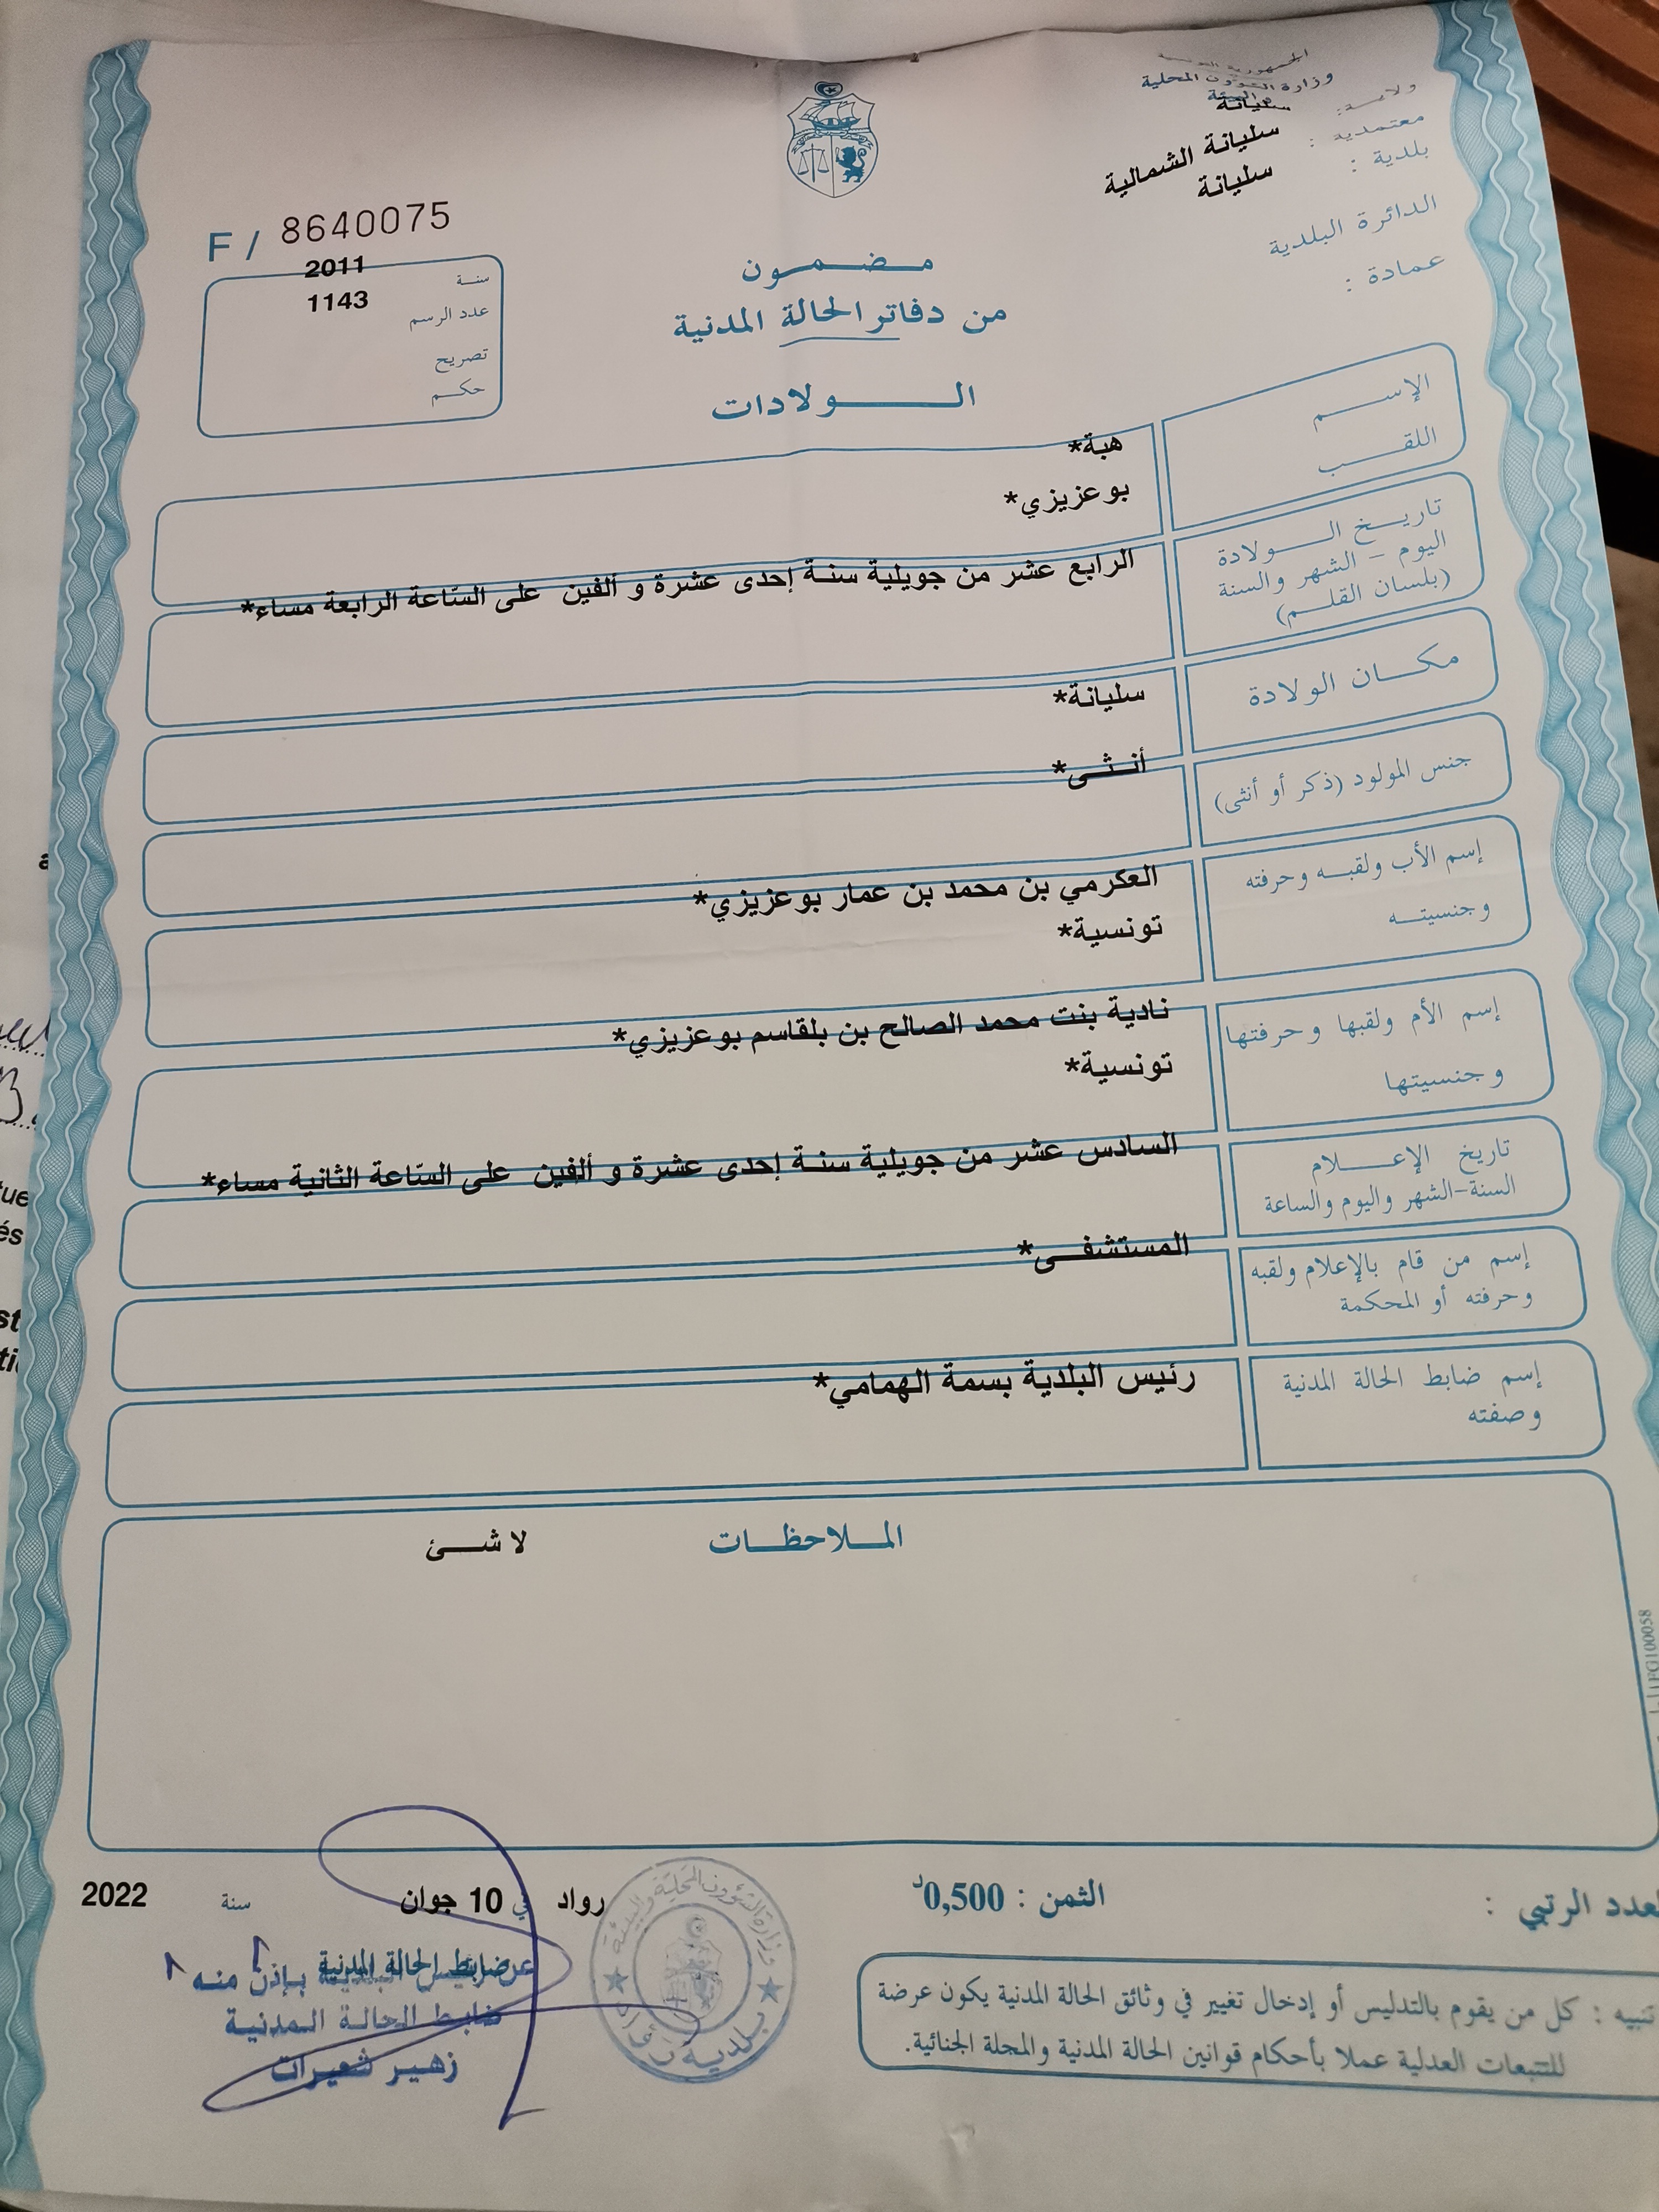 الجمهورية التونسية
وزارة الشؤون المحلية
والبيئة
ولاية: سليانة
معتمدية : سليانة الشمالية
بلدية : سليانة
الدائرة البلدية
عمادة :
F / 8640075
سنة 2011
عدد الرسم 1143
تصريح
حكم
مضمون
من دفاتر الحالة المدنية
الولادات
الإسم هبة*
اللقب بوعزيزي*
تاريخ الولادة الرابع عشر من جويلية سنة إحدى عشرة و ألفين على السّاعة الرابعة مساء*
اليوم - الشهر والسنة
(بلسان القلم)
مكان الولادة سليانة*
جنس المولود (ذكر أو أنثى) أنثى*
إسم الأب ولقبه وحرفته العكرمي بن محمد بن عمار بوعزيزي*
وجنسيته تونسية*
إسم الأم ولقبها وحرفتها نادية بنت محمد الصالح بن بلقاسم بوعزيزي*
وجنسيتها تونسية*
تاريخ الإعلام السادس عشر من جويلية سنة إحدى عشرة و ألفين على السّاعة الثانية مساء*
السنة-الشهر واليوم والساعة
إسم من قام بالإعلام ولقبه المستشفى*
وحرفته أو المحكمة
إسم ضابط الحالة المدنية رئيس البلدية بسمة الهمامي*
وصفته
الملاحظات لا شئ
العدد الرتبي :
الثمن : 0,500د
رواد في 10 جوان سنة 2022
ضابط الحالة المدنية
عن رئيس البلدية بإذن منه
ضابط الحالة المدنية
زهير شعيرات
وزارة الشؤون المحلية والبيئة
بلدية رواد
تنبيه : كل من يقوم بالتدليس أو إدخال تغيير في وثائق الحالة المدنية يكون عرضة
للتتبعات العدلية عملا بأحكام قوانين الحالة المدنية والمجلة الجنائية.